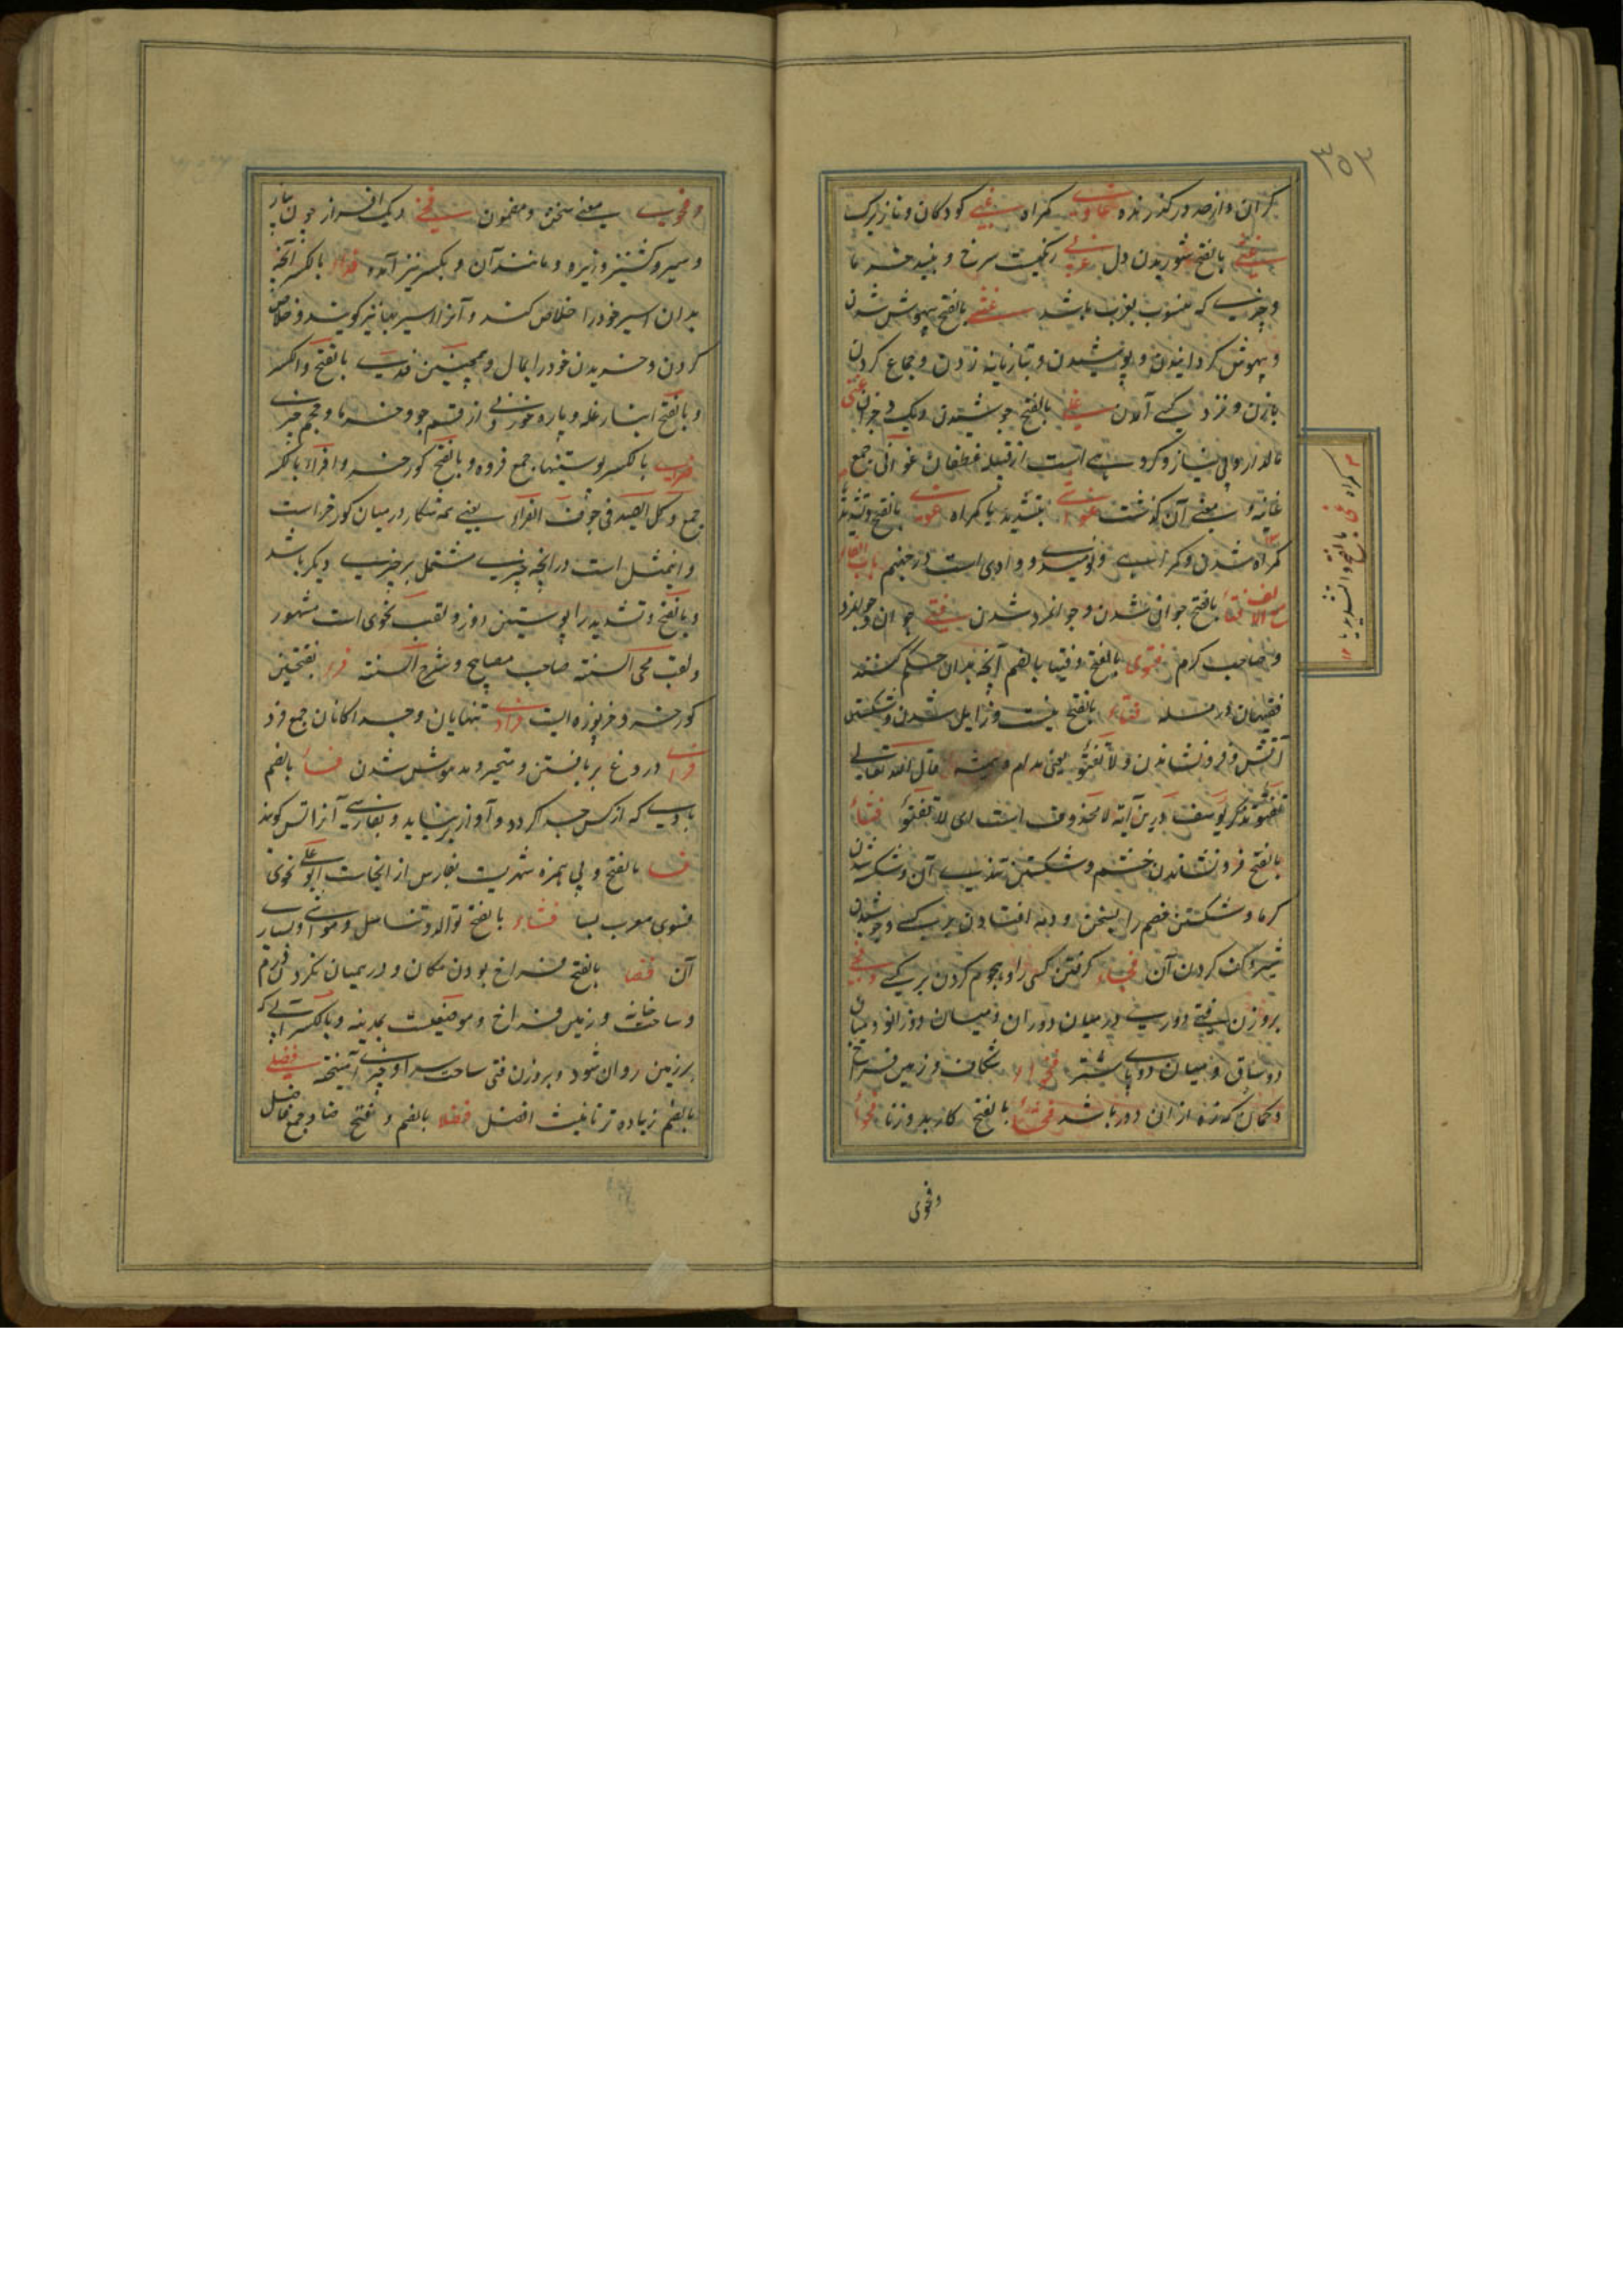 ۳۵۳
کران و از حد در گذرنده غماوی گمراه غبی کودکان و نازیرک
غثی بالفتح شوریدن دل غربی رنگیست سرخ و نبیذ خرما
و چیزی که منسوب بغرب باشد غشی بالفتح بیهوش شدن
و بیهوش گردانیدن و پوشیدن و بتازیانه زدن و جماع کردن
بازن و نزد کسی آمدن غلی بالفتح جوشیدن دیک و جز آن غنی
مالدار و بی نیاز و گروهی است از قبیله غطفان غوانی جمع
غانیه و معنی آن گذشت غوای بتشدید یا گمراه غوی بالفتح و تشدید یا
گمراه شدن و گمراهی و نومیدی و وادی است در جهنم باب الفاء
مع الالف فتا بافتح جوان شدن و جوانمرد شدن فتی جوان و جوانمرد
و صاحب کرم فتوی بالفتح و فتیا بالضم آنچه بدان حکم کنند
فقیهان در مسله فتاء بالفتح نیست و زایل شدن و شکستن
آتش و فرو نشاندن و لا تفتؤ یعنی مدام و همیشه قال الله تعالی
تفتؤ تذکر یوسف درین آیه لا محذوف است ای لا تفتؤ فثاء
بالفتح فرو نشاندن خشم و شکستن تندی آن و شکسته شدن
گرما و شکستن خصم را بسخن
شیر و کف کردن آن فجاء گرفتن کسی را و هجوم کردن بر کسی و فجی
بر وزن فتی دوری در میان دو ران و میان دو زانو و میان
دو ساق و میان دو پای شتر فجواء شکاف و زمین فراخ
و کمان که زه از ان دور باشد فحشاء بالفتح کار بد و زنا فحوا
و فحوی
گمراه فج بالفتح و التشدید یا ۱۲
و فحوی بمعنی سخن و مضمون فحی دیک افزار چون پیاز
و سیر و کشنیز و زیره و مانند آن و بکسر نیز آمده فداء بالکسر آنچه
بدان اسیر خود را خلاص کنند و آنرا سربها نیز گویند و خلاص
کردن و خریدن خود را بمال و همچنین فدی بالفتح و الکسر
و بالفتح انبار غله و پاره خوردنی از قسم جو و خرما و حجم چیزی
فرا بالکسر پوستینها جمع فروه و بالفتح گورخر و افراء بالکسر
جمع و کل الصید فی جوف الفراء یعنی همه شکار در میان گورخر است
و این مثل است در آنچه چیزی مشتمل بر چیزی دیگر باشد
و بالفتح و تشدید را پوستین دوز و لقب نحوی است مشهور
و لقب محی السنة صاحب مصابیح و شرح السنة فرء بفتحتین
گورخر و خرپوزه است فرادی تنهایان و جدا گانان جمع فرد
فری دروغ بر بافتن و متحیر و مدهوش شدن فساء بالضم
بادی که از کس جدا گردد و آواز بر نیاید و بفارسی آنرا تس گویند
فسا بالفتح و بی همزه شهریست بفارس از انجاست ابو علی نحوی
فسوی معرب بسا فشاء بالفتح توالد و تناسل و مواشی و بسیاری
آن فضا بالفتح فراخ بودن مکان و در همیان نکردن درم
و ساحت خانه و زمین فراخ و موضعیست بمدینه و بالکسر آبی که
بر زمین روان شود و بر وزن فتی ساحت سرا و چیزی آمیخته فضلی
بالضم زیاده تر تانیث افضل فضلا بالضم و فتح ضاد جمع فاضل